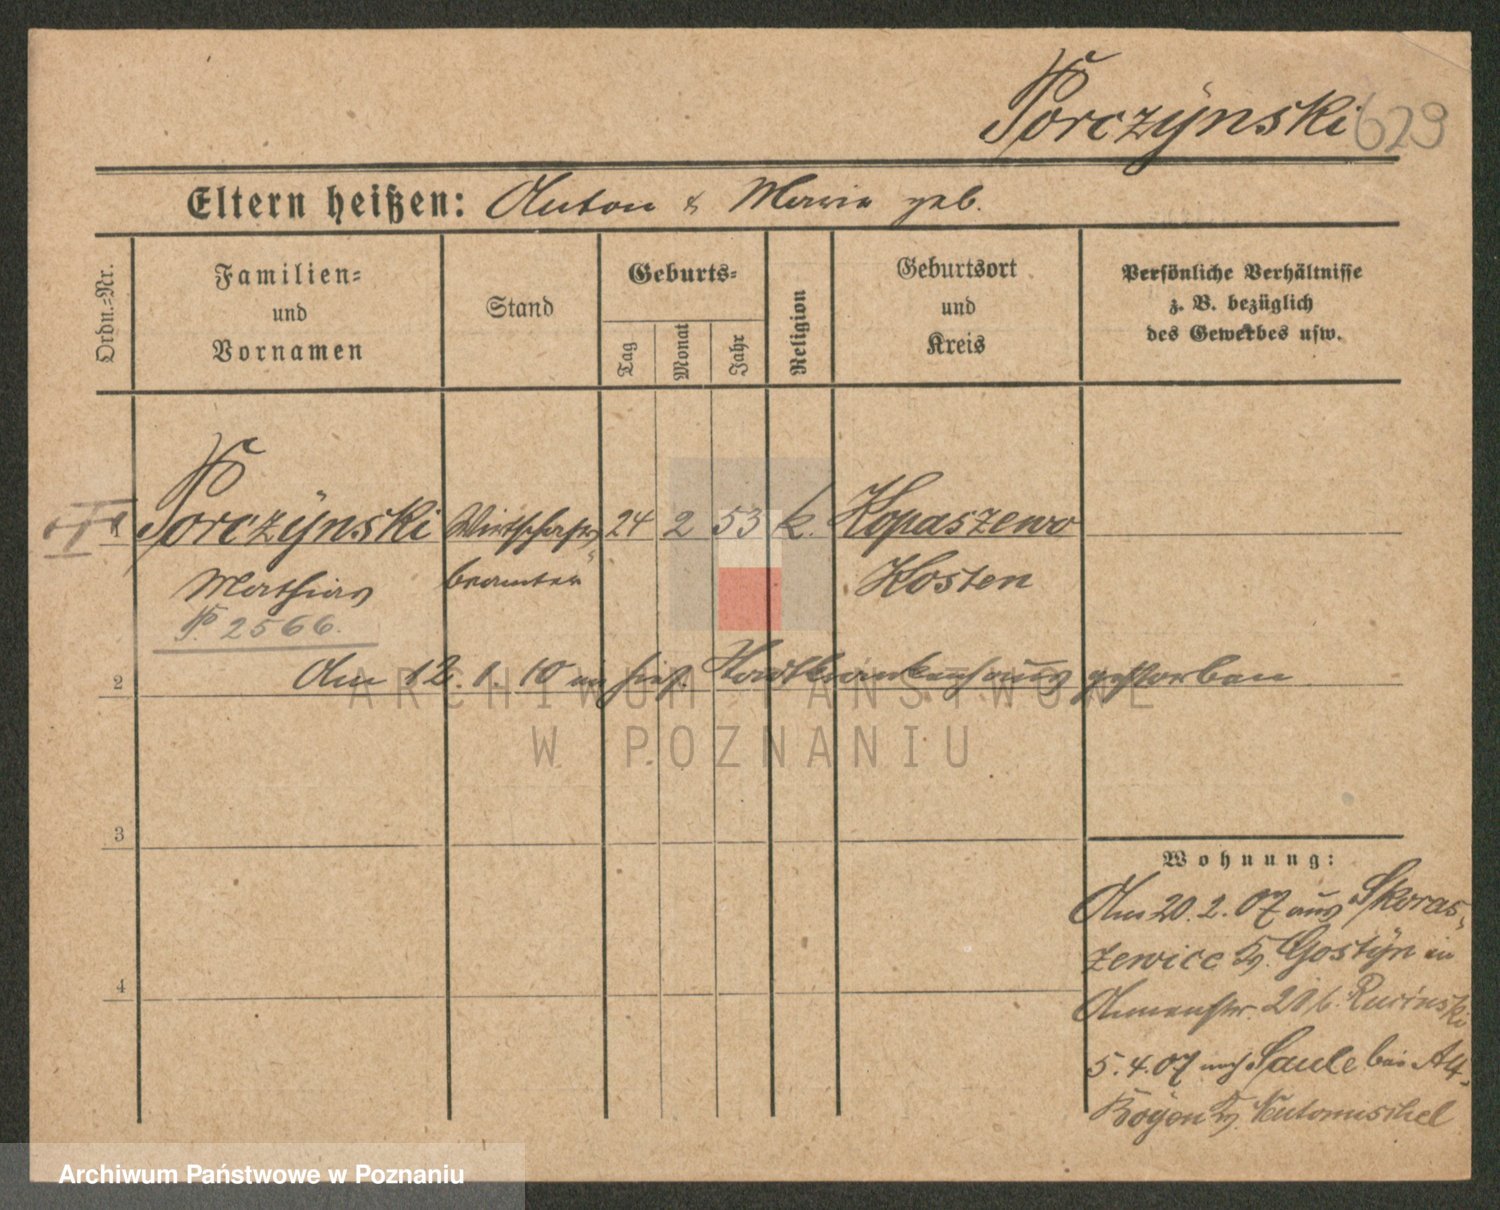 Porczÿnski 629
Eltern heißen: Anton & Marie geb.
Ordn.=Nr.
Familien=
und
Vornamen
Stand
Geburts=
Tag
Monat
Jahr
Religion
Geburtsort
und
Kreis
Persönliche Verhältnisse
z. B. bezüglich
des Gewerbes usw.
1 Porczÿnski Wirtschafts 24 2 53 k. Kopaszewo
Mathias beamter Kosten
P. 2566.
2 Am 12. 1. 10 im hies. Stadtkrankenhaus gestorben
ARCHIWUM PAŃSTWOWE
W POZNANIU
3
4
Wohnung:
Am 20. 2. 07 aus Skoras-
zewice Kr. Gostÿn in
5. 4. 07 nach Saule bei Alt
Kr. Neutomischel
Archiwum Państwowe w Poznaniu